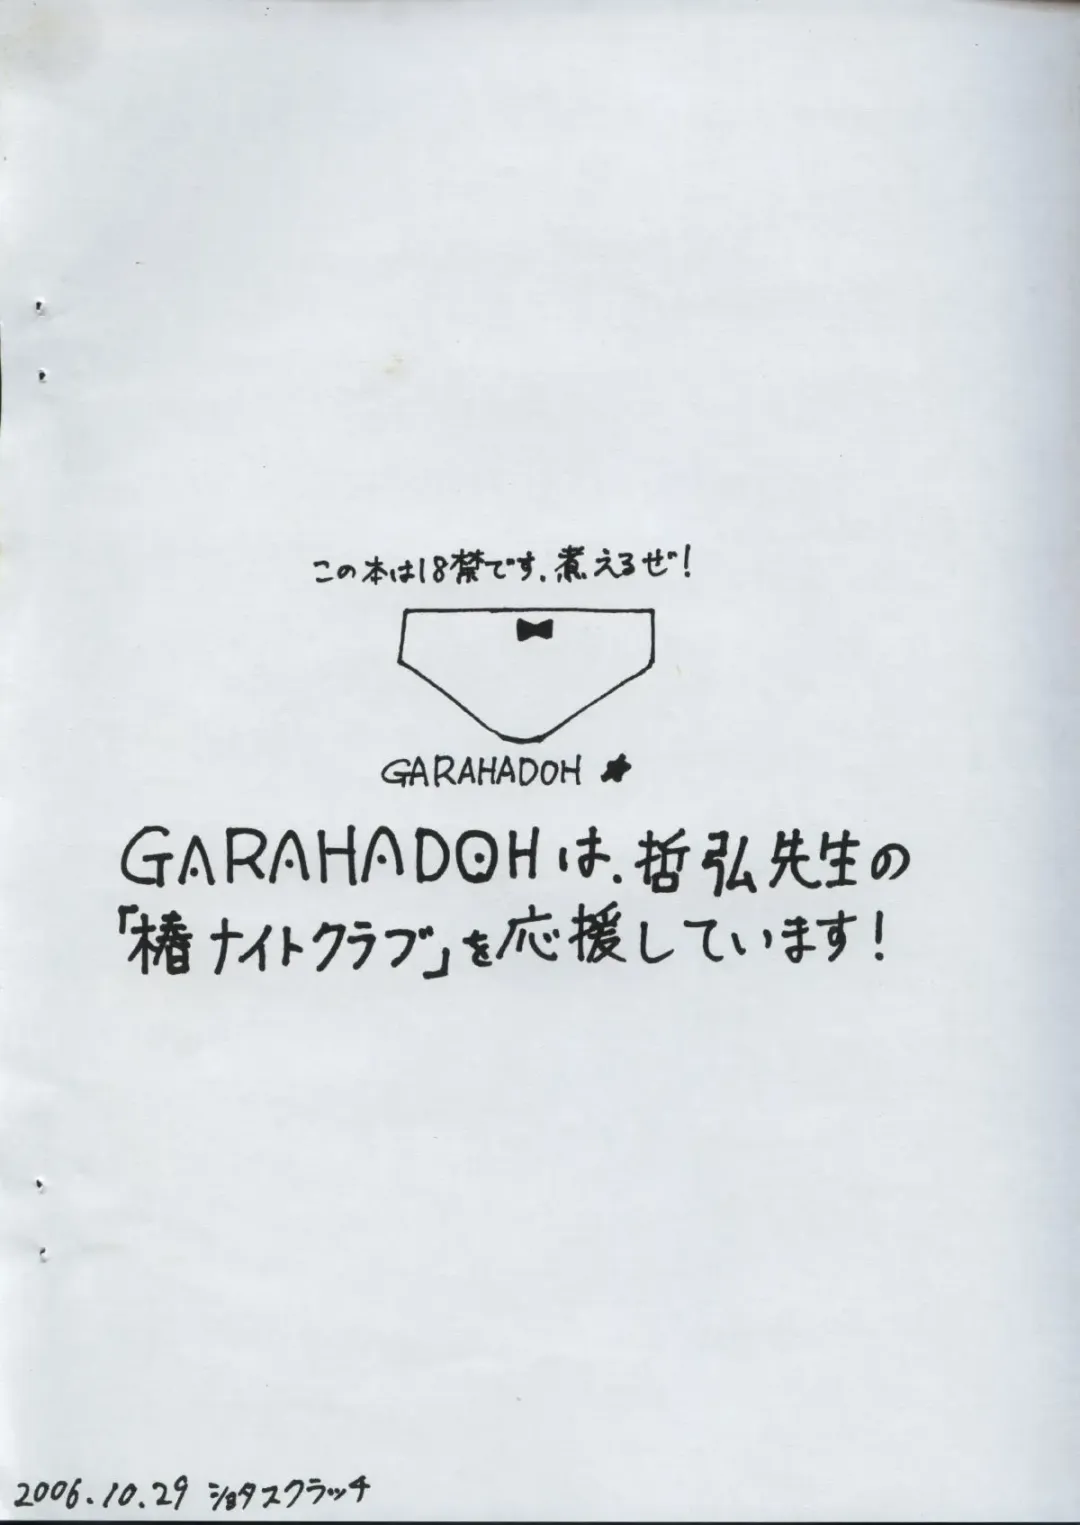 この本は18禁です.煮えるぜ!
GARAHADOH ★
GARAHADOHは.哲弘先生の
「椿ナイトクラブ」を応援しています!
2006.10.29 ショタスクラッチ